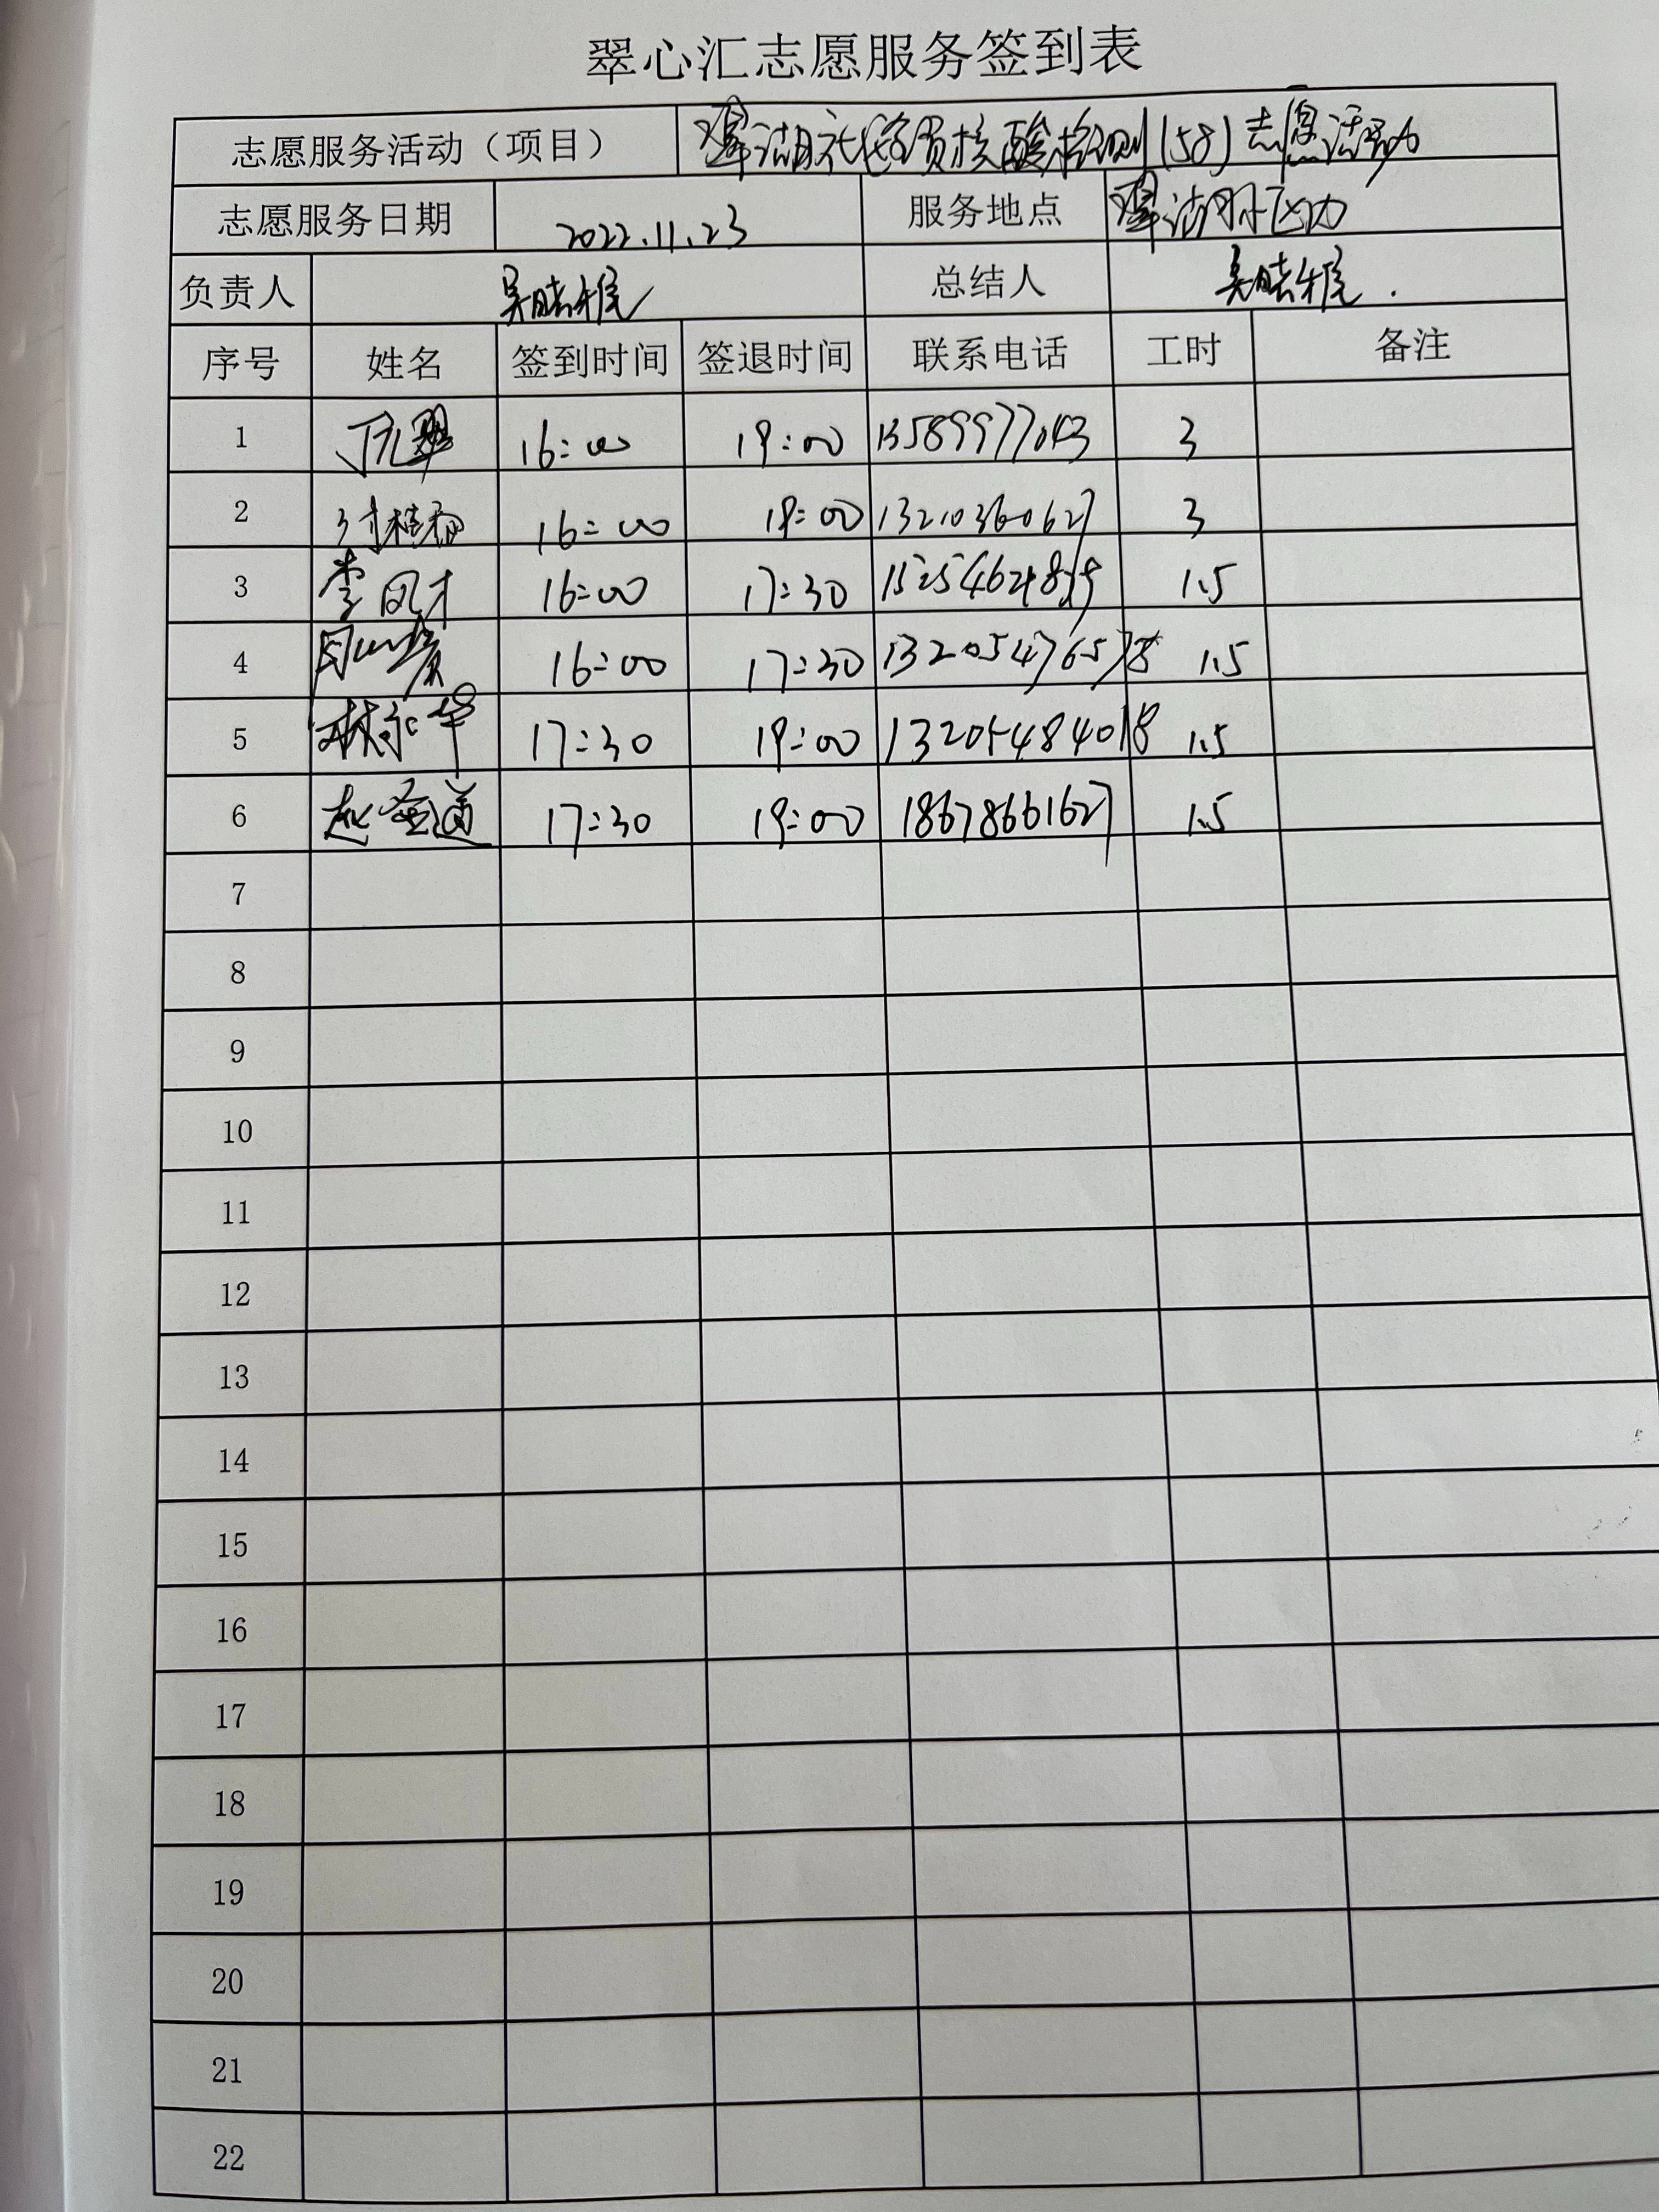 翠心汇志愿服务签到表
志愿服务活动（项目） 翠湖社区全员核酸检测(58)志愿活动
志愿服务日期 2022.11.23 服务地点 翠湖社区
负责人 吴晓雅 总结人 吴晓雅.
序号 姓名 签到时间 签退时间 联系电话 工时 备注
1 16:00 19:00 13589977043 3
2 16:00 19:00 13210360627 3
3 李风才 16:00 17:30 1.5
4 16:00 17:30 1.5
5 林永华 17:30 19:00 13205484018 1.5
6 赵圣道 17:30 19:00 18678661627 1.5
7
8
9
10
11
12
13
14
15
16
17
18
19
20
21
22